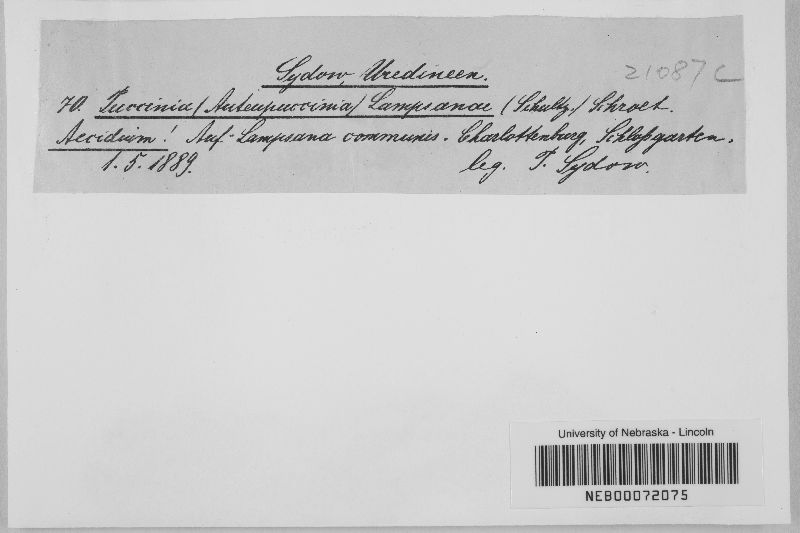 Sydow, Uredineen.
21087 C
70. Puccinia (Auteupuccinia) Lampsanae (Schultz.) Schroet.
Aecidium! Auf Lampsana communis. Charlottenburg, Schloßgarten.
1. 5. 1889. leg. P. Sydow.
University of Nebraska - Lincoln
NEB00072075